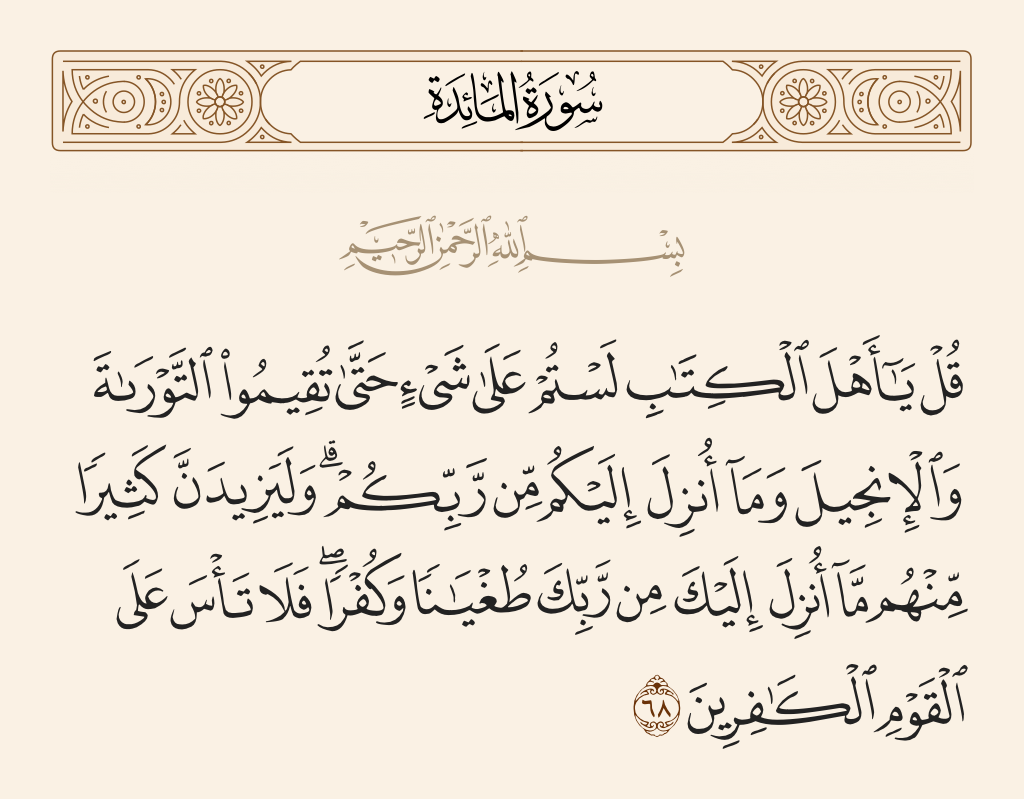 سُورَةُ المَائِدَةِ
بِسْمِ ٱللَّهِ ٱلرَّحْمَٰنِ ٱلرَّحِيمِ
قُلْ يَٰٓأَهْلَ ٱلْكِتَٰبِ لَسْتُمْ عَلَىٰ شَىْءٍ حَتَّىٰ تُقِيمُوا۟ ٱلتَّوْرَىٰةَ
وَٱلْإِنجِيلَ وَمَآ أُنزِلَ إِلَيْكُم مِّن رَّبِّكُمْ ۗ وَلَيَزِيدَنَّ كَثِيرًا
مِّنْهُم مَّآ أُنزِلَ إِلَيْكَ مِن رَّبِّكَ طُغْيَٰنًا وَكُفْرًا ۖ فَلَا تَأْسَ عَلَى
ٱلْقَوْمِ ٱلْكَٰفِرِينَ ٦٨